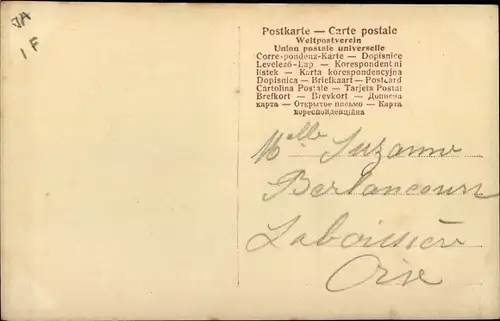 JA
1 F
Postkarte — Carte postale
Weltpostverein
Union postale universelle
Corre-pondenz-Karte — Dopisnice
Levelező-Lap — Korespondentní
lístek — Karta korespondencyjna
Dopisnica — Briefkaart — Postcard
Cartolina Postale — Tarjeta Postal
Brefkort — Brevkort — Дописна
карта — Открытое письмо — Карта
кореспонденційна
Melle Suzanne
Berlancourt
Laboissière
Oise